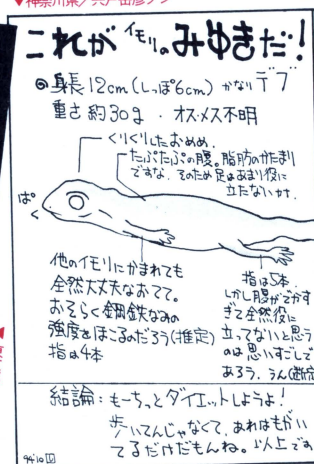 これがイモリのみゆきだ!
◎身長12cm(しっぽ6cm)かなりデブ
重さ約30g ・オス・メス不明
くりくりしたおめめ.
たぷたぷの腹。脂肪のかたまり
ですな。そのため足はあまり役に
立たない
ぱく
他のイモリにかまれても
全然大丈夫なおてて。
おそらく鋼鉄なみの
強度をほこるのだろう(推定)
指は4本
指は5本.
しかし腹がでかす
ぎて全然役に
立ってないと思う
のは思いすごしで
あろう、うん(断定
結論:もーちっとダイエットしようよ!
歩いてんじゃなくて、あれはもがい
てるだけだもんね。以上です